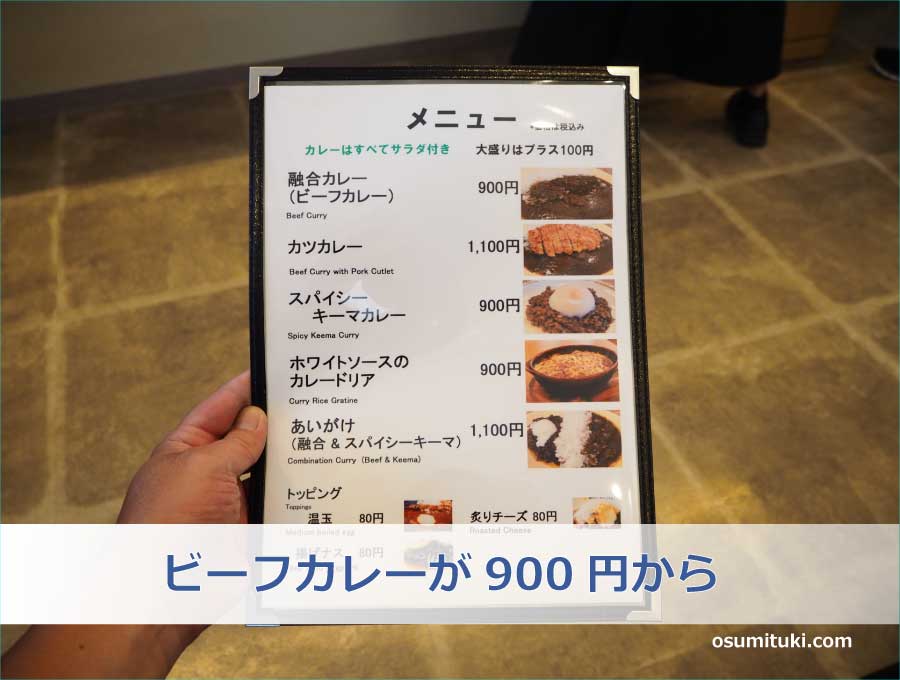 メニュー
*価格は税込み
カレーはすべてサラダ付き 大盛りはプラス100円
融合カレー
(ビーフカレー) 900円
Beef Curry
カツカレー 1,100円
Beef Curry with Pork Cutlet
スパイシー
キーマカレー 900円
Spicy Keema Curry
ホワイトソースの
カレードリア 900円
Curry Rice Gratine
あいがけ
(融合 & スパイシーキーマ) 1,100円
Combination Curry (Beef & Keema)
トッピング
Toppings
温玉 80円 炙りチーズ 80円
Medium boiled egg Roasted Cheese
揚げナス 80円
ビーフカレーが 900 円から
osumituki.com